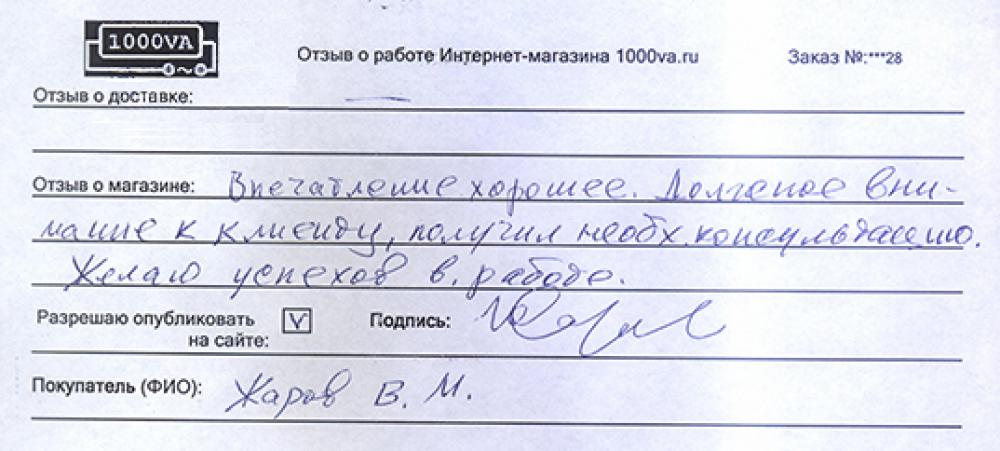 1000VA
Отзыв о работе Интернет-магазина 1000va.ru
Заказ №:***28
Отзыв о доставке: —
Отзыв о магазине: Впечатление хорошее. Должное вни-
мание к клиенту, получил необх. консультацию.
Желаю успехов в работе.
Разрешаю опубликовать на сайте: V
Подпись:
Покупатель (ФИО): Жаров В. М.